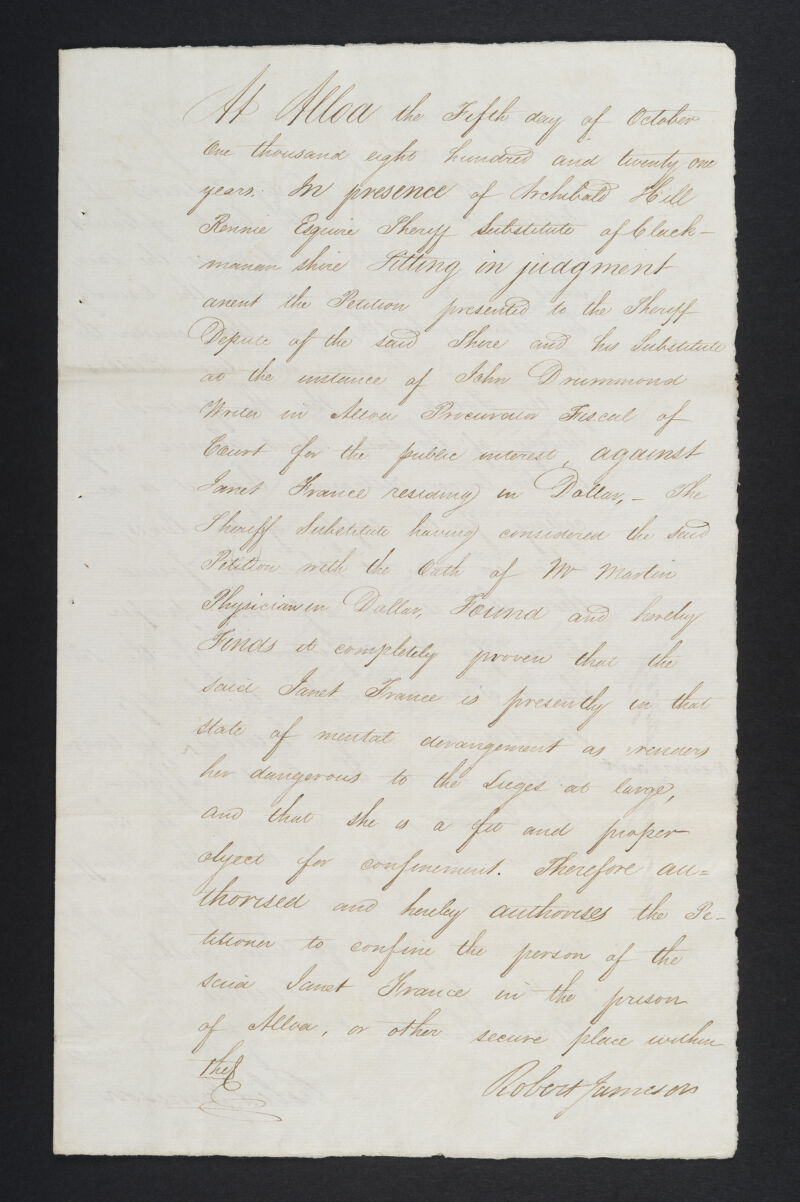 At Alloa the Fifth day of October
One thousand eight hundred and twenty one
years. In presence of Archibald Hill
Rennie Esquire Sheriff Substitute of Clack-
manan shire Sitting in judgment
anent the Petition presented to the Sheriff
Depute of the said Shire and his Substitute
at the instance of John Drummond
Writer in Alloa Procurator Fiscal of
Court for the public interest, against
Janet France residing in Dollar, - The
Sheriff Substitute having considered the said
Petition with the Oath of Mr Martin
Physician in Dollar, Found and hereby
Finds it completely proven that the
said Janet France is presently in that
state of mental derangement as renders
her dangerous to the Lieges at large,
and that she is a fit and proper
object for confinement. Therefore au=
thorised and hereby authorises the Pe-
titioner to confine the person of the
said Janet France in the prison
of Alloa, or other secure place within
the
Robert Jameson